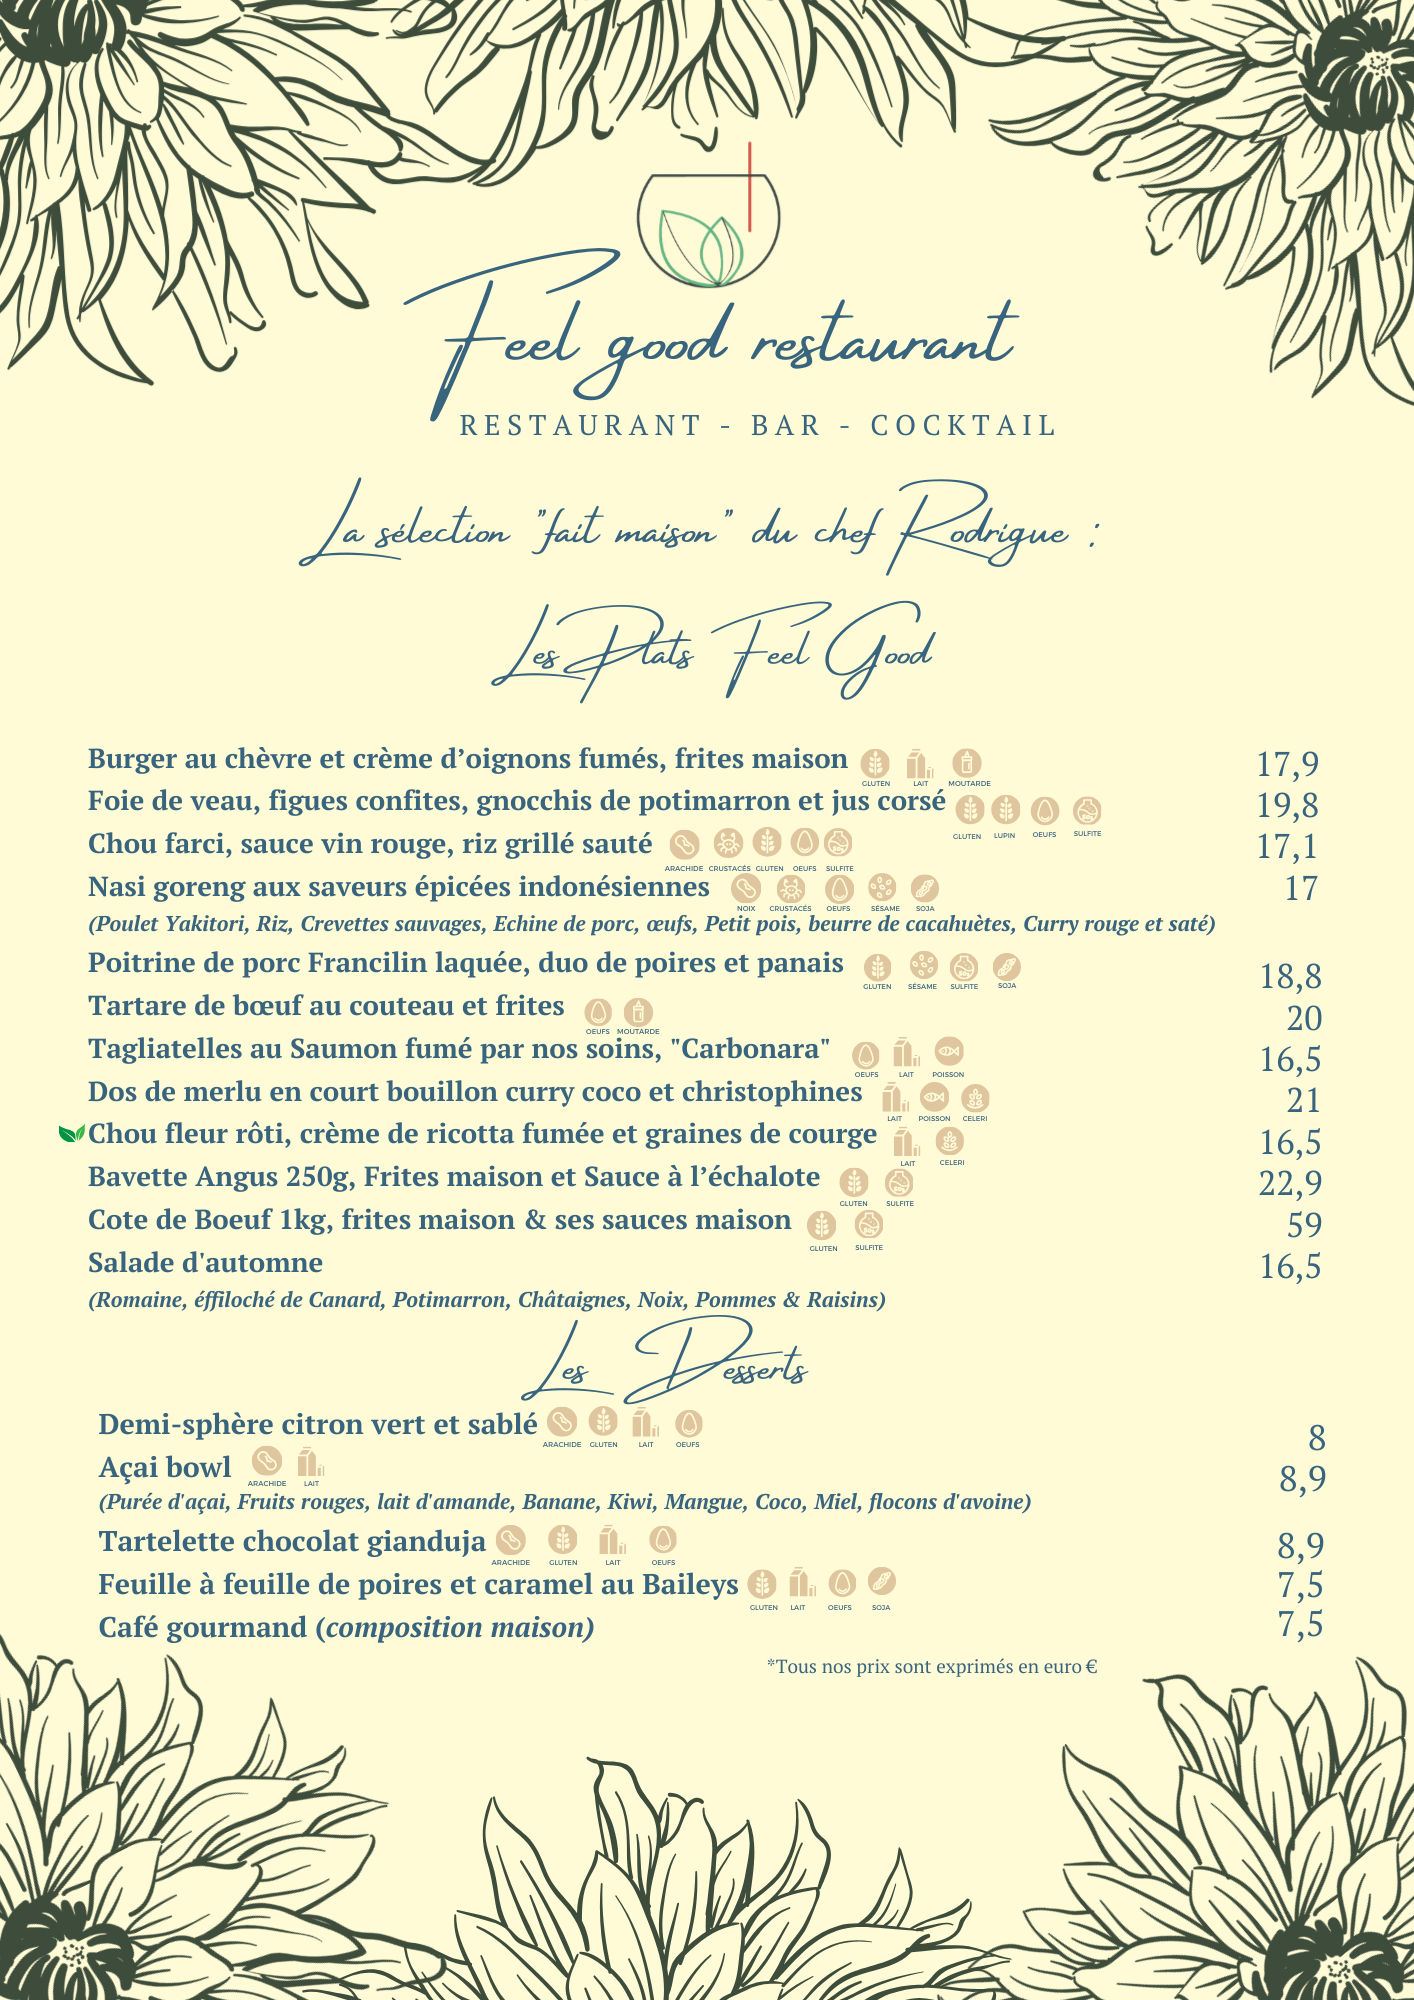 Feel good restaurant
RESTAURANT - BAR - COCKTAIL
La sélection "fait maison" du chef Rodrigue :
Les Plats Feel Good
Burger au chèvre et crème d’oignons fumés, frites maison GLUTEN LAIT MOUTARDE 17,9
Foie de veau, figues confites, gnocchis de potimarron et jus corsé GLUTEN LUPIN OEUFS SULFITE 19,8
Chou farci, sauce vin rouge, riz grillé sauté ARACHIDE CRUSTACÉS GLUTEN OEUFS SULFITE 17,1
Nasi goreng aux saveurs épicées indonésiennes NOIX CRUSTACÉS OEUFS SÉSAME SOJA 17
(Poulet Yakitori, Riz, Crevettes sauvages, Echine de porc, œufs, Petit pois, beurre de cacahuètes, Curry rouge et saté)
Poitrine de porc Francilin laquée, duo de poires et panais GLUTEN SÉSAME SULFITE SOJA 18,8
Tartare de bœuf au couteau et frites OEUFS MOUTARDE 20
Tagliatelles au Saumon fumé par nos soins, "Carbonara" OEUFS LAIT POISSON 16,5
Dos de merlu en court bouillon curry coco et christophines LAIT POISSON CELERI 21
Chou fleur rôti, crème de ricotta fumée et graines de courge LAIT CELERI 16,5
Bavette Angus 250g, Frites maison et Sauce à l’échalote GLUTEN SULFITE 22,9
Cote de Boeuf 1kg, frites maison & ses sauces maison GLUTEN SULFITE 59
Salade d'automne 16,5
(Romaine, éffiloché de Canard, Potimarron, Châtaignes, Noix, Pommes & Raisins)
Les Desserts
Demi-sphère citron vert et sablé ARACHIDE GLUTEN LAIT OEUFS 8
Açai bowl ARACHIDE LAIT 8,9
(Purée d'açai, Fruits rouges, lait d'amande, Banane, Kiwi, Mangue, Coco, Miel, flocons d'avoine)
Tartelette chocolat gianduja ARACHIDE GLUTEN LAIT OEUFS 8,9
Feuille à feuille de poires et caramel au Baileys GLUTEN LAIT OEUFS SOJA 7,5
Café gourmand (composition maison) 7,5
*Tous nos prix sont exprimés en euro €